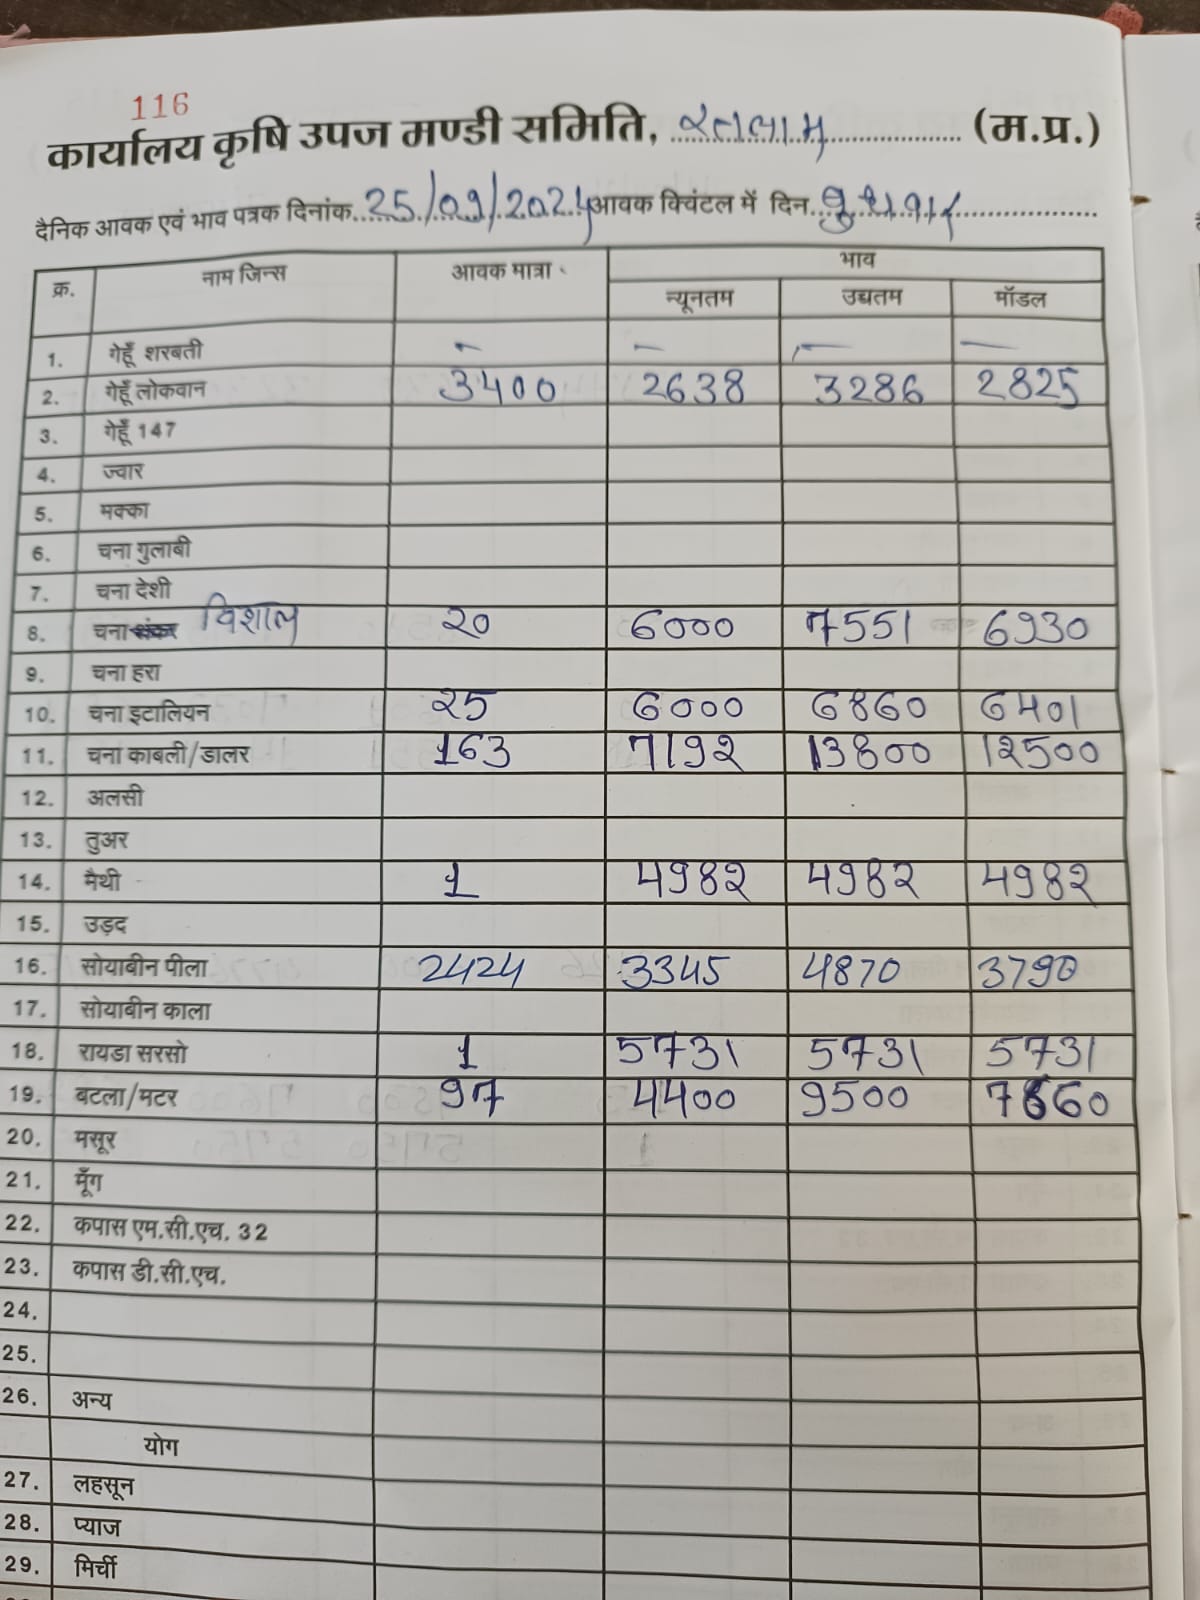 116
कार्यालय कृषि उपज मण्डी समिति, रतलाम (म.प्र.)
दैनिक आवक एवं भाव पत्रक दिनांक 25/09/2024 आवक क्विंटल में दिन बुधवार
क्र. नाम जिन्स आवक मात्रा भाव
न्यूनतम उच्चतम मॉडल
1. गेहूँ शरबती - - - -
2. गेहूँ लोकवान 3400 2638 3286 2825
3. गेहूँ 147
4. ज्वार
5. मक्का
6. चना गुलाबी
7. चना देशी
8. चना शंकर विशाल 20 6000 7551 6930
9. चना हरा
10. चना इटालियन 25 6000 6860 6401
11. चना काबली/डालर 163 7192 13800 12500
12. अलसी
13. तुअर
14. मैथी 1 4982 4982 4982
15. उड़द
16. सोयाबीन पीला 2424 3345 4870 3790
17. सोयाबीन काला
18. रायडा सरसो 1 5731 5731 5731
19. बटला/मटर 97 4400 9500 7660
20. मसूर
21. मूँग
22. कपास एम.सी.एच. 32
23. कपास डी.सी.एच.
24.
25.
26. अन्य
योग
27. लहसून
28. प्याज
29. मिर्ची